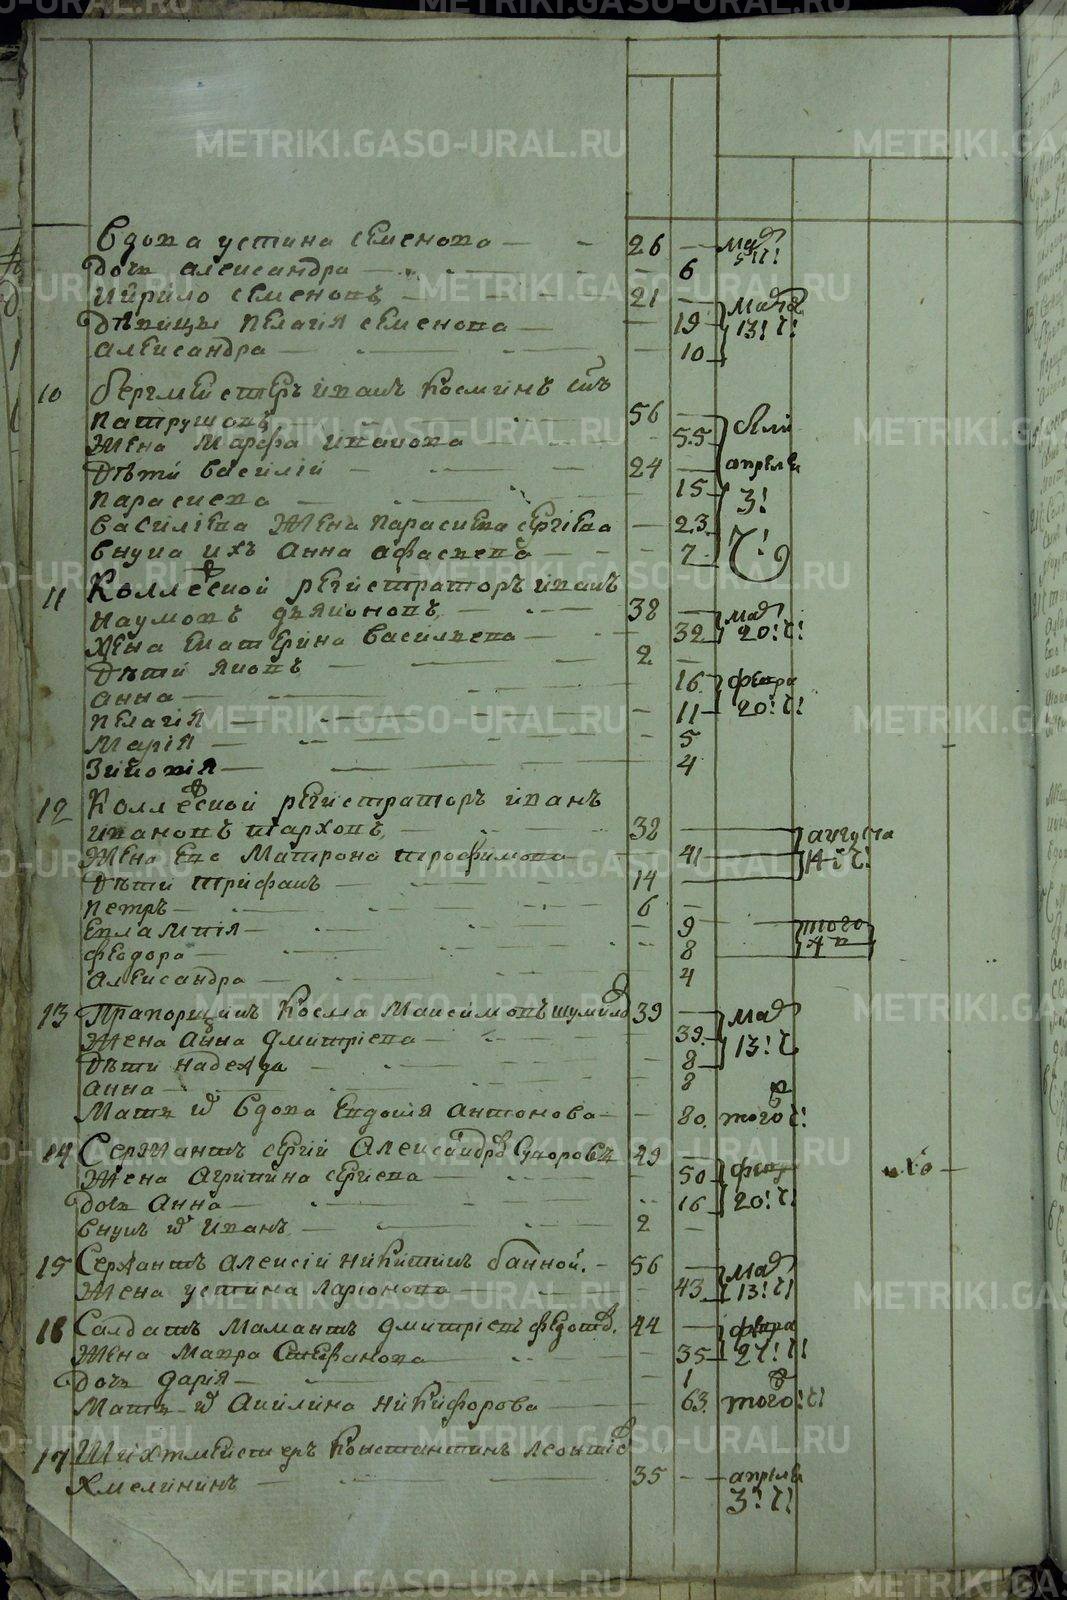 Вдова устина семенова — 26 — мая
дочь александра — 6 5 ч!
Кирило семеновъ — 21 — марта
Дѣвицы пелагия семенова — 19 13! ч!
александра — 10
10 бергмейстеръ иванъ Косминъ сынъ
патрушовъ — 56 —
жена Марфа иванова — 55
Дѣти василий — 24 — апреля
парасиева — 15 3!
василиева жена парасиева сергиева — 23
внука ихъ Анна афасиева — 7
11 Коллежской регистраторъ иванъ
наумовъ дьяконовъ — 38 — мая
жена екатерина васильева — 32 20! ч!
Дѣти яковъ — 2 —
анна — 16 февра
пелагия — 11 20! ч!
Мария — 5
Зиновия — 4
12 Коллежской регистраторъ иванъ
ивановъ шарховъ — 32 — августа
жена ево Матрона трофимова — 41 14 ч!
Дѣти трифанъ — 14 —
петръ — 6 —
евлампия — 9 того
феодора — 8
александра — 4
13 Прапорщикъ Косма Максимовъ шумилов 39 — мая
жена Анна дмитриева — 39 13! ч
Дѣти надежда — 8
анна — 8
Мать ево вдова Евдокия антонова — 80 того ч!
14 Сержантъ сергий Александров Суворовъ 49 — февр
жена агрипина сергиева — 50 20! ч!
дочь анна — 16
внукъ ево иванъ — 2 —
15 Сержантъ алексий никитинъ банной. — 56 — мая
жена устина ларионова — 43 13! ч!
16 Салдатъ Мамантъ дмитриевъ федотов. 44 — февра
жена Мавра Стефанова — 35 2 ч! ч!
дочь дария — 1
Мать ево Акилина никифорова — 63 того! ч!
17 Шихтмейстеръ Константинъ леонтиев
Хмелининъ — 35 — апреля
3! ч!
METRIKI.GASO-URAL.RU